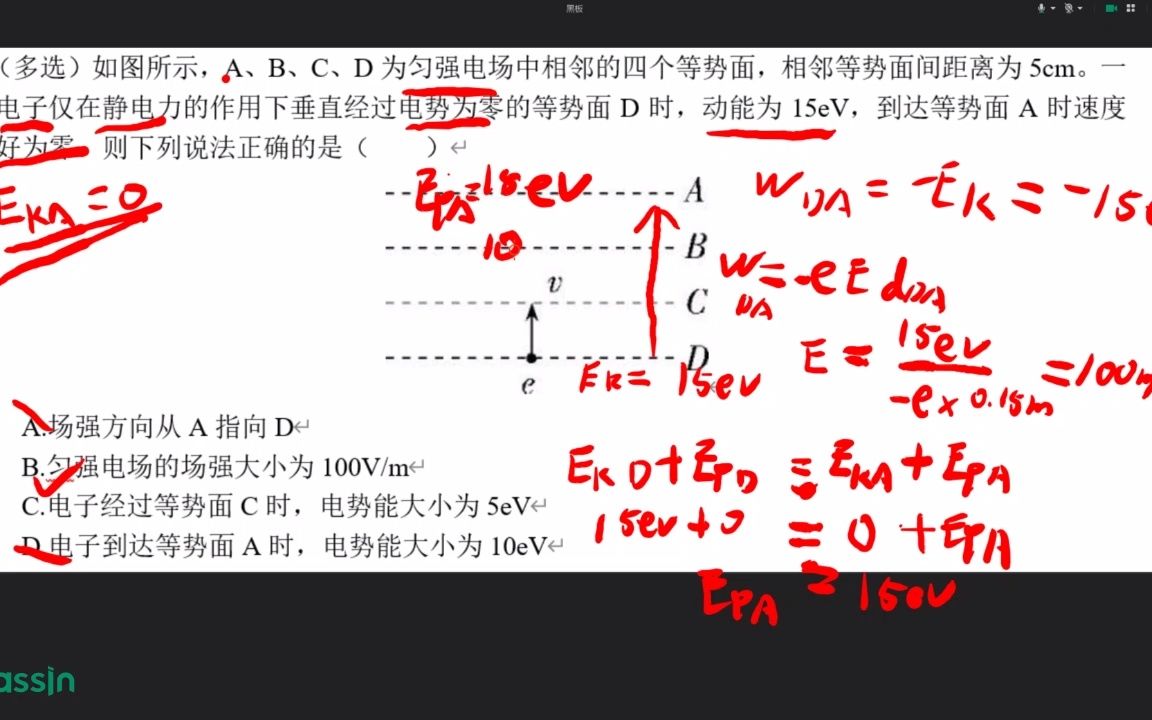 黑板
（多选）如图所示，A、B、C、D 为匀强电场中相邻的四个等势面，相邻等势面间距离为 5cm。一
电子仅在静电力的作用下垂直经过电势为零的等势面 D 时，动能为 15eV，到达等势面 A 时速度
好为零 则下列说法正确的是（ ）
EKA = 0
EPA = 15ev
A
WDA = -EK = -15
10
B
v
WDA = -eEdDA
C
D
e
EK = 15ev
E = 15ev / -e×0.15m = 100
A.场强方向从 A 指向 D
B.匀强电场的场强大小为 100V/m
EKD + EPD = EKA + EPA
C.电子经过等势面 C 时，电势能大小为 5eV
15ev + 0 = 0 + EPA
D.电子到达等势面 A 时，电势能大小为 10eV
EPA = 15ev
assin